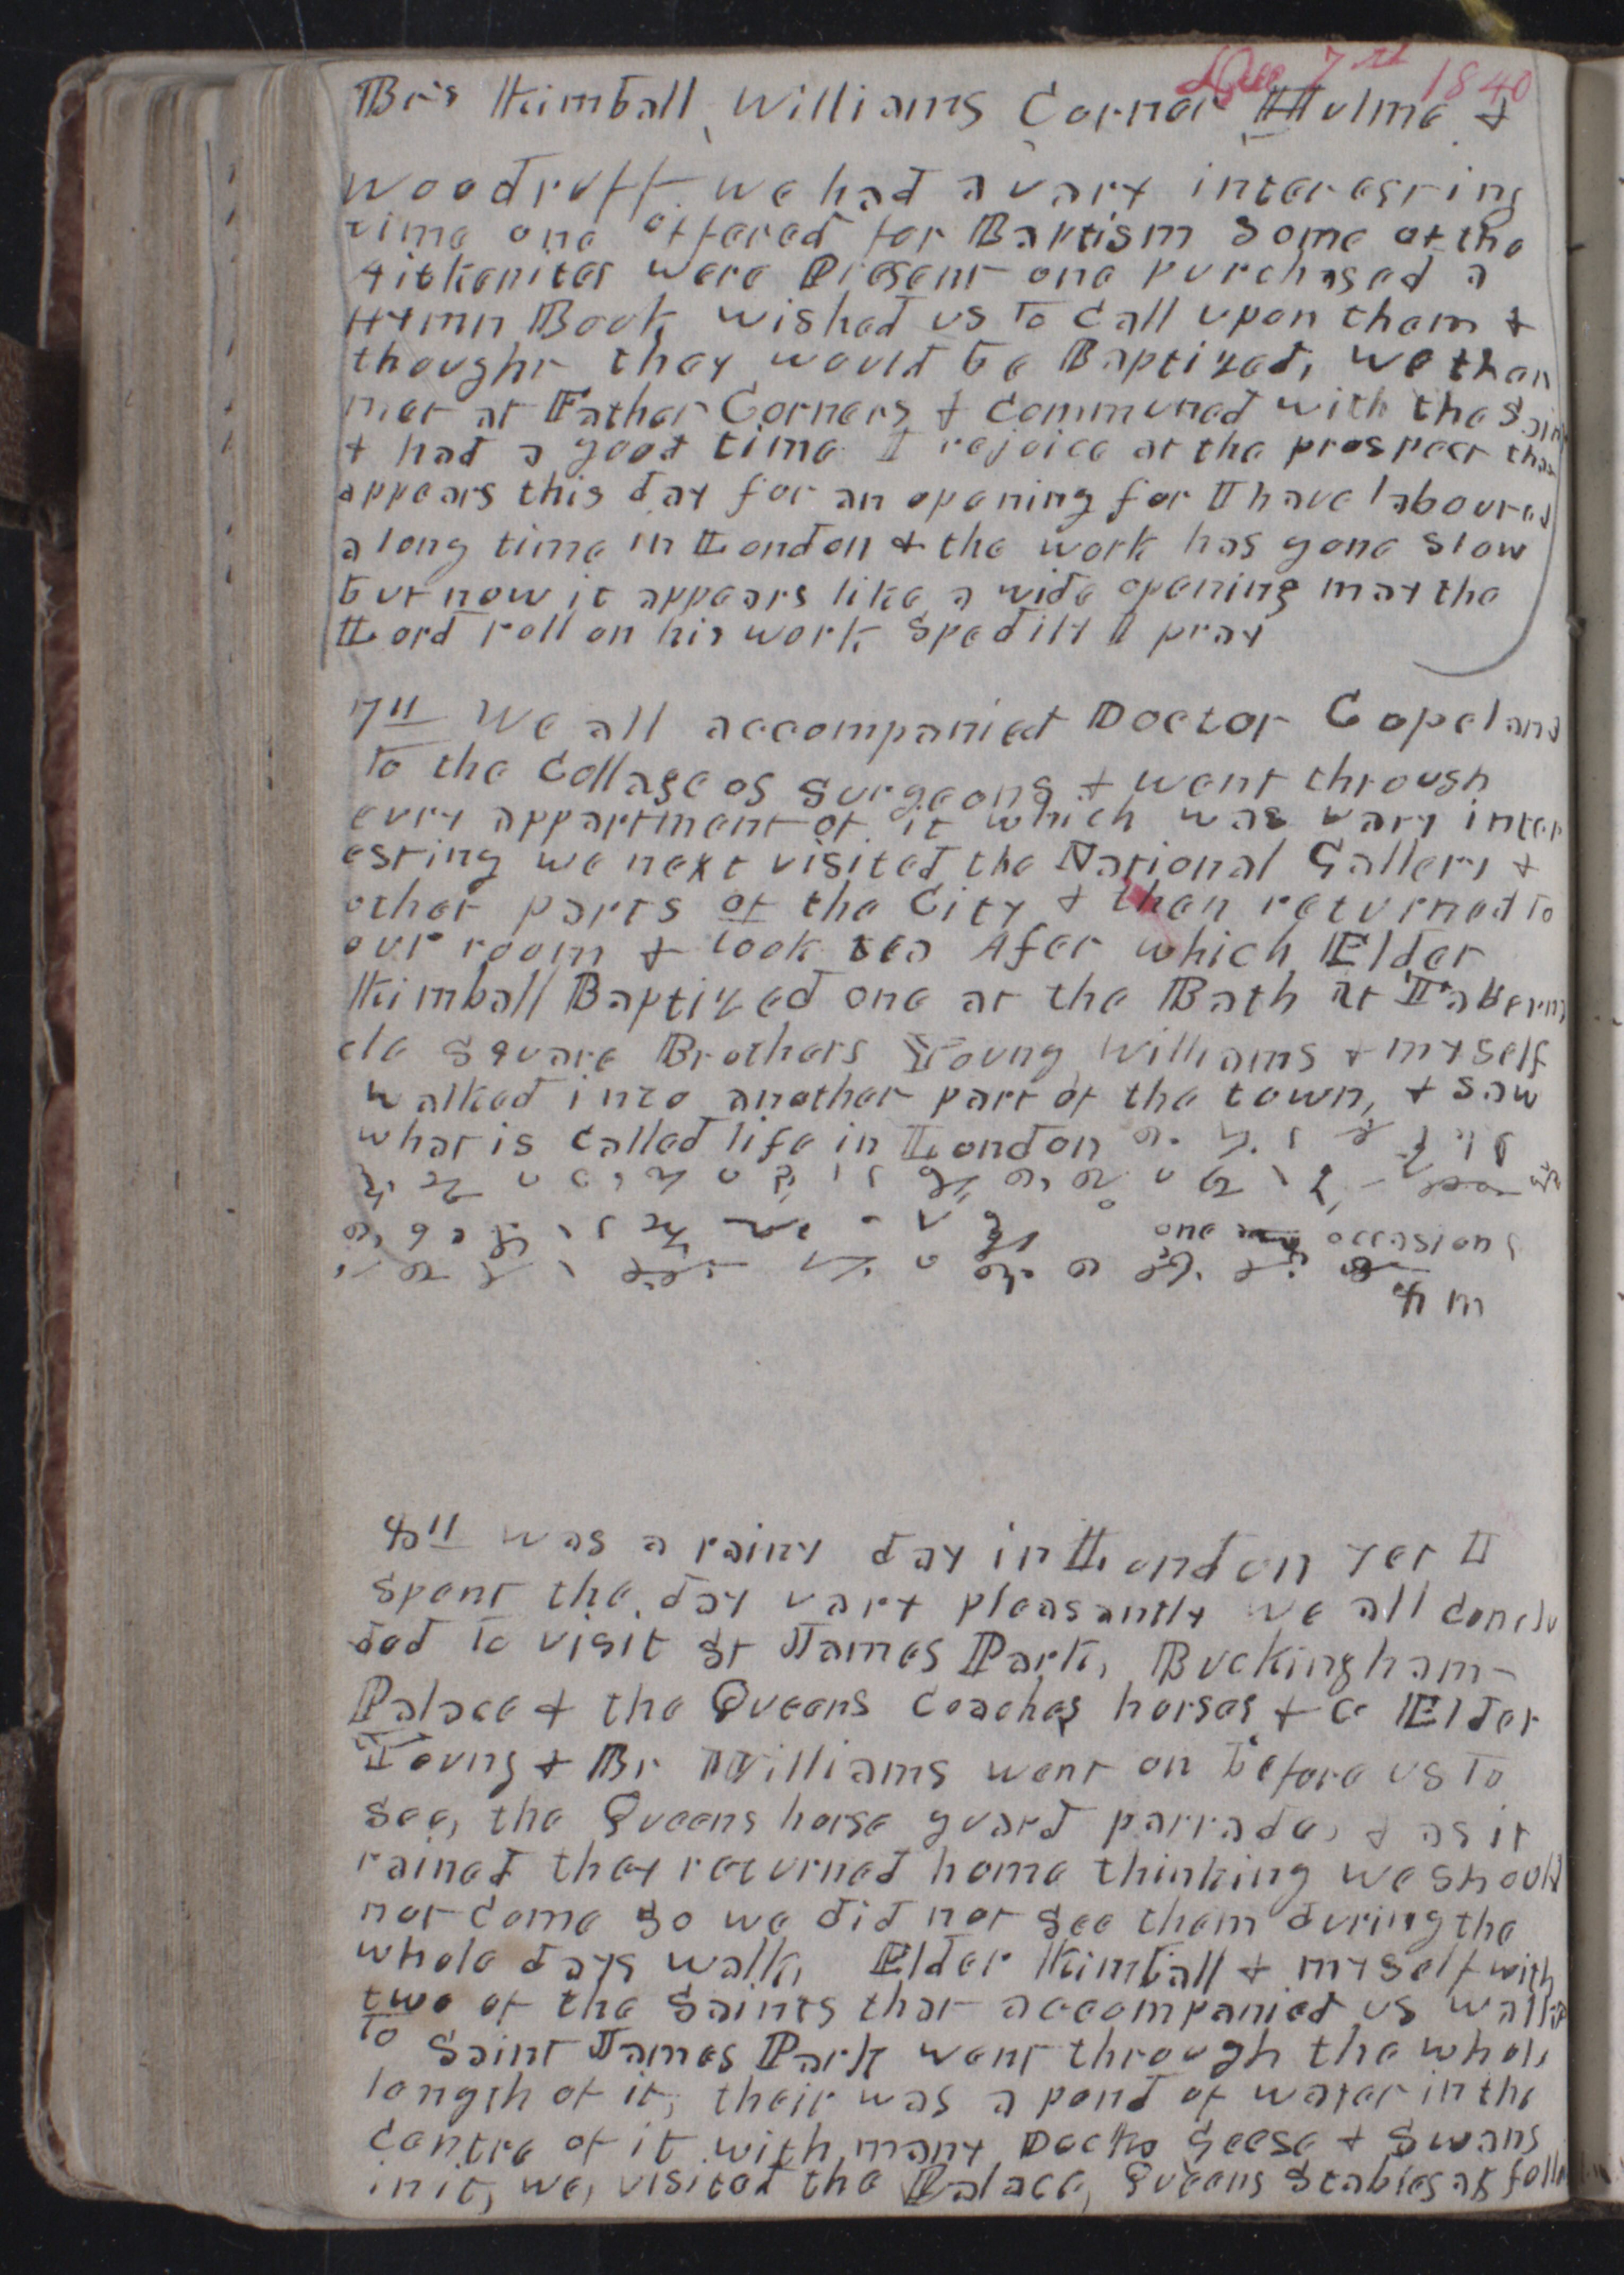 Dec 7th 1840
Br's Kimball, Williams Corner Hulme &
Woodruff. we had a vary interesting
time one offered for Baptism some of the
Aitkenites were Present one purchased a
Hymn Book wished us to call upon them &
thought they would be Baptized, we then
met at Father Corners & communed with the Saint
& had a good time I rejoice at the prospect that
appears this day for an opening for I have laboured
a long time in London & the work has gone slow
but now it appears like a wide opening may the
Lord roll on his work spedily I pray
7th We all accompanied Doctor Copeland
to the College of Surgeons & went through
evry appartment of it which was vary inter
esting we next visited the National Gallery &
other parts of the City & then returned to
our room & took tea After which Elder
Kimball Baptized one at the Bath at Taberna
cle Square Brothers Young Williams & myself
walked into another part of the town, & saw
what is called life in London
one occasions
4 m
8th was a rainy day in London yet I
spent the day vary pleasantly we all conclu
ded to visit St James Park, Buckingham
Palace & the Queens coaches horses &c Elder
Young & Br Williams went on before us to
see, the Queens horse guard parrade, & as it
rained they returned home thinking we should
not come so we did not see them during the
whole days walk, Elder Kimball & myself with
two of the Saints that accompanied us walked
to Saint James Park went through the whole
length of it, their was a pond of water in the
centre of it with many Ducks Geese & Swans
in it, we, visited the Palace, Queens Stables as follo